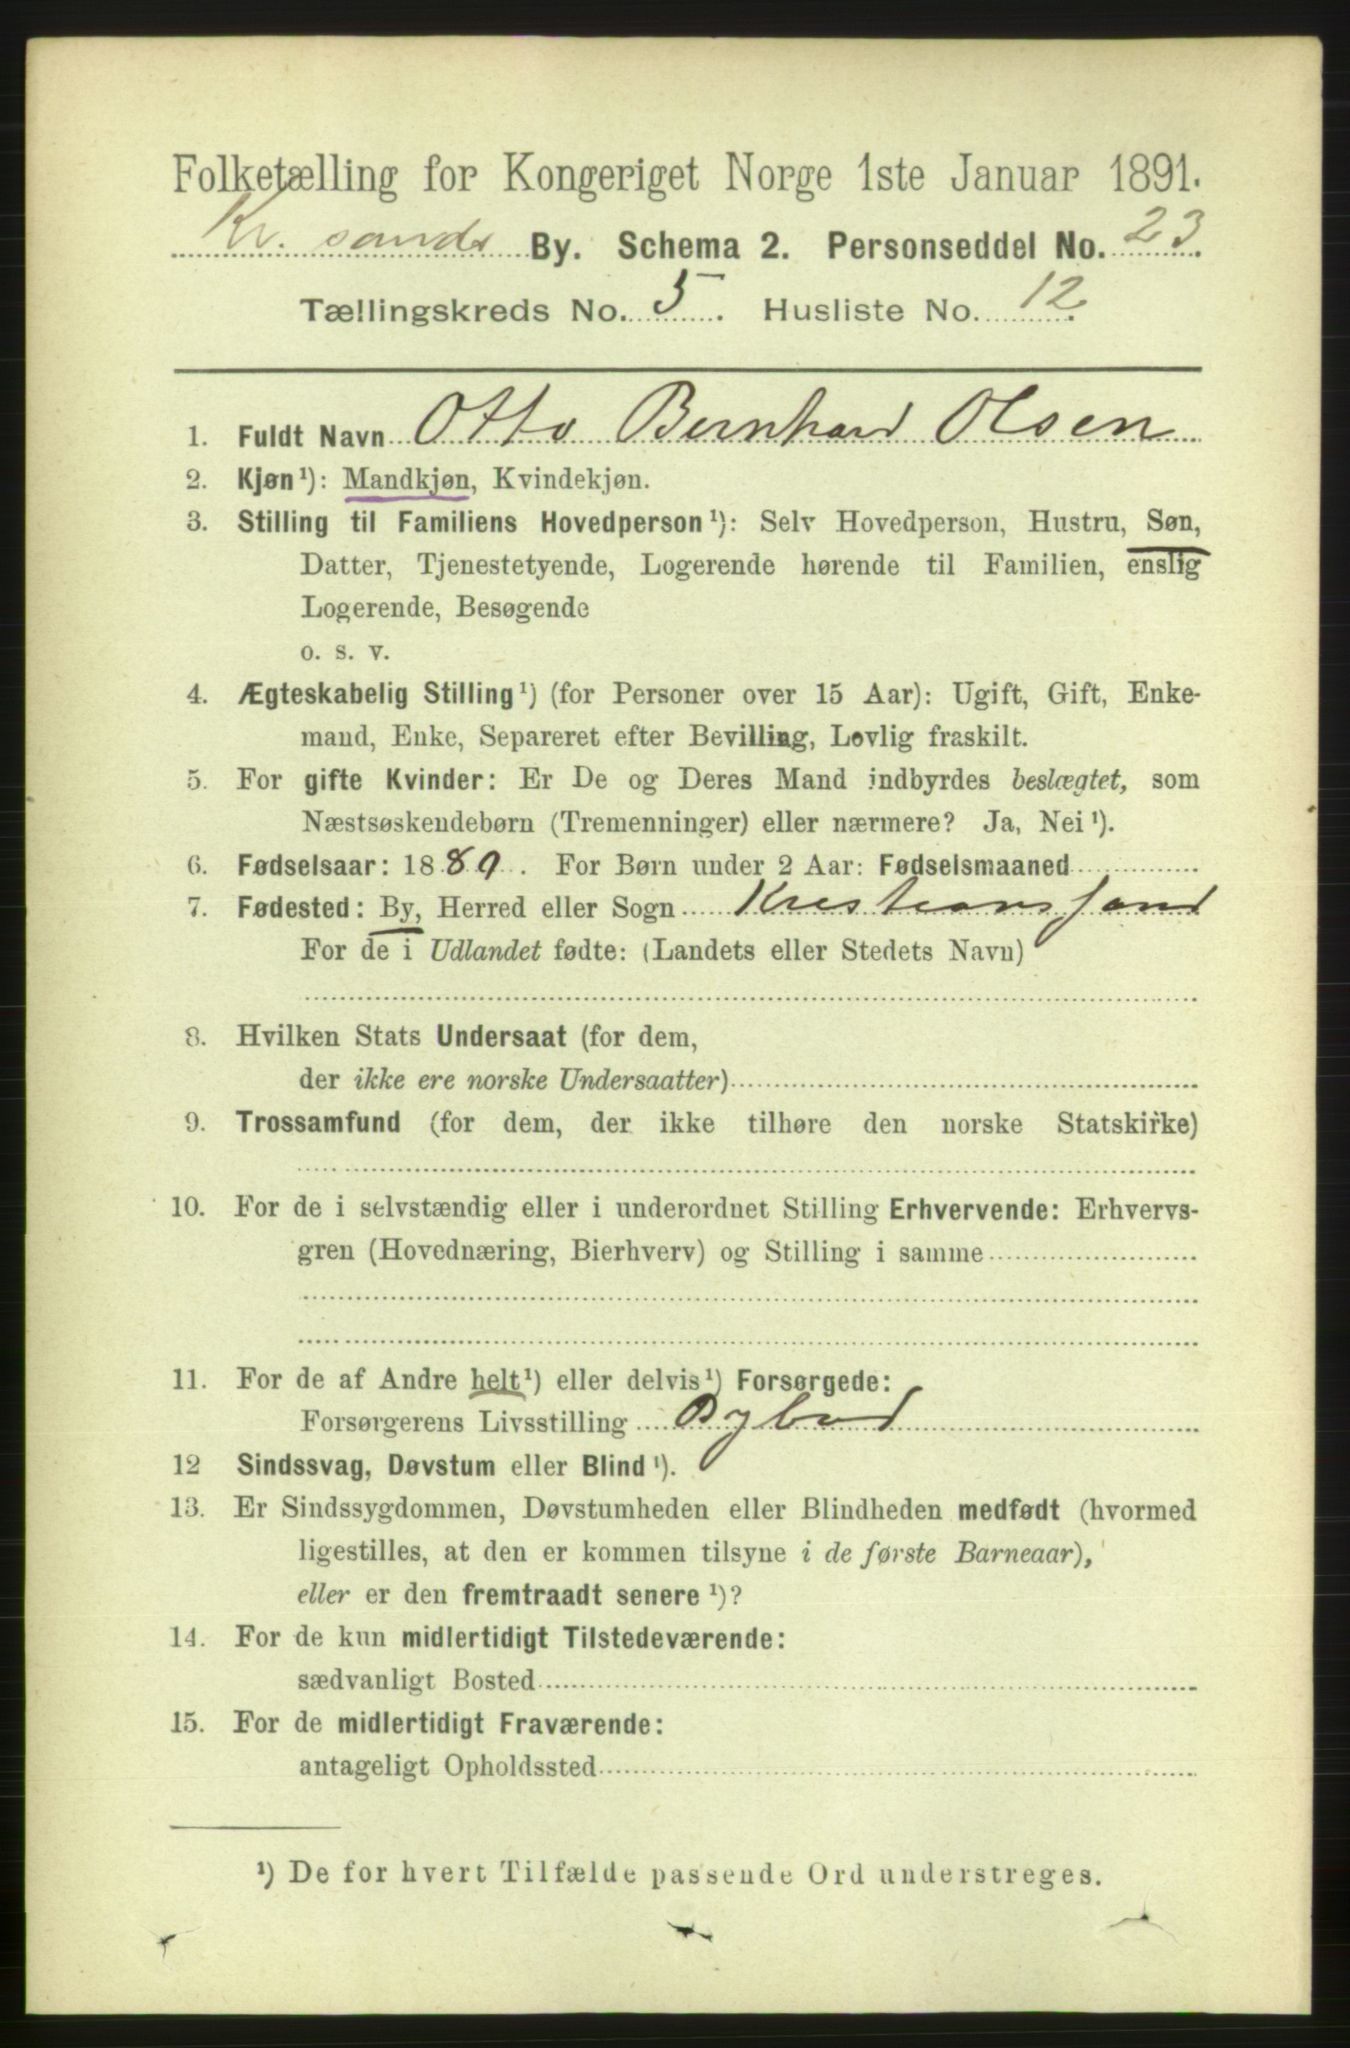 Folketælling for Kongeriget Norge 1ste Januar 1891.
Kr. sands By. Schema 2. Personseddel No. 23.
Tællingskreds No. 5. Husliste No. 12.
1. Fuldt Navn Otto Bernhard Olsen
2. Kjøn¹): Mandkjøn, Kvindekjøn.
3. Stilling til Familiens Hovedperson¹): Selv Hovedperson, Hustru, Søn,
Datter, Tjenestetyende, Logerende hørende til Familien, enslig
Logerende, Besøgende
o. s. v.
4. Ægteskabelig Stilling¹) (for Personer over 15 Aar): Ugift, Gift, Enke-
mand, Enke, Separeret efter Bevilling, Lovlig fraskilt.
5. For gifte Kvinder: Er De og Deres Mand indbyrdes beslægtet, som
Næstsøskendebørn (Tremenninger) eller nærmere? Ja, Nei¹).
6. Fødselsaar: 1889. For Børn under 2 Aar: Fødselsmaaned
7. Fødested: By, Herred eller Sogn Kristianssand
For de i Udlandet fødte: (Landets eller Stedets Navn)
8. Hvilken Stats Undersaat (for dem,
der ikke ere norske Undersaatter)
9. Trossamfund (for dem, der ikke tilhøre den norske Statskirke)
10. For de i selvstændig eller i underordnet Stilling Erhvervende: Erhvervs-
gren (Hovednæring, Bierhverv) og Stilling i samme
11. For de af Andre helt¹) eller delvis¹) Forsørgede:
Forsørgerens Livsstilling Bybud
12 Sindssvag, Døvstum eller Blind¹).
13. Er Sindssygdommen, Døvstumheden eller Blindheden medfødt (hvormed
ligestilles, at den er kommen tilsyne i de første Barneaar),
eller er den fremtraadt senere¹)?
14. For de kun midlertidigt Tilstedeværende:
sædvanligt Bosted
15. For de midlertidigt Fraværende:
antageligt Opholdssted
¹) De for hvert Tilfælde passende Ord understreges.